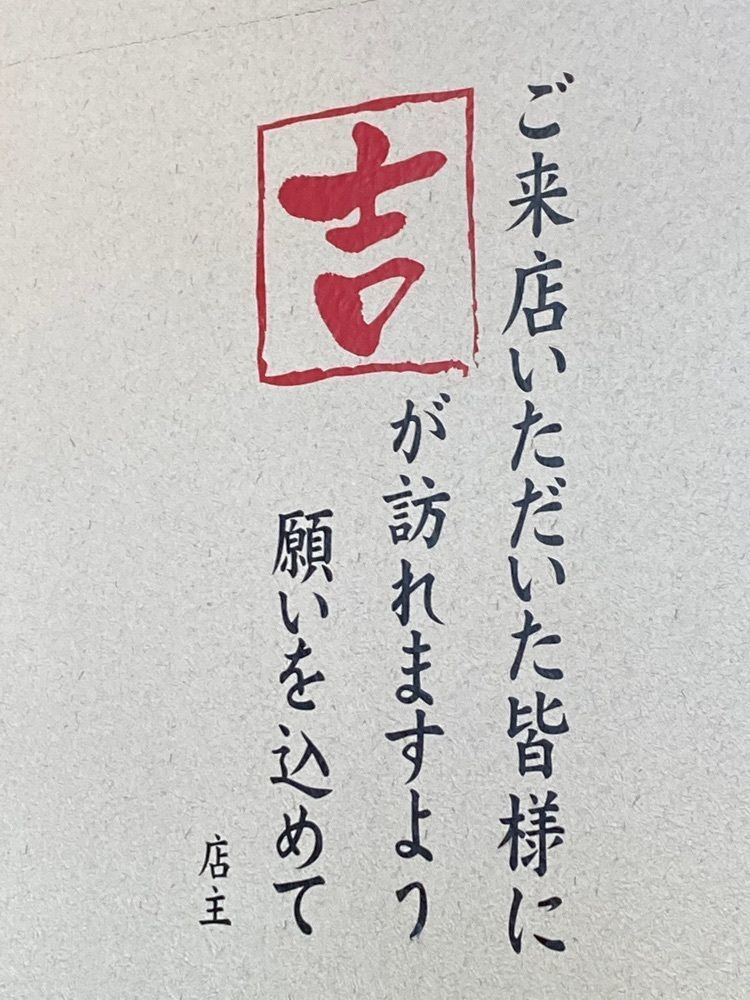 ご来店いただいた皆様に
吉が訪れますよう
願いを込めて
店主